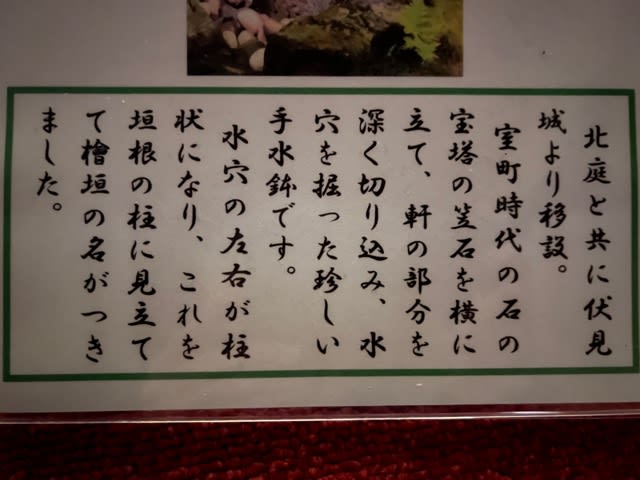 北庭と共に伏見
城より移設。
室町時代の石の
宝塔の笠石を横に
立て、軒の部分を
深く切り込み、水
穴を掘った珍しい
手水鉢です。
水穴の左右が柱
状になり、これを
垣根の柱に見立て
て檜垣の名がつき
ました。